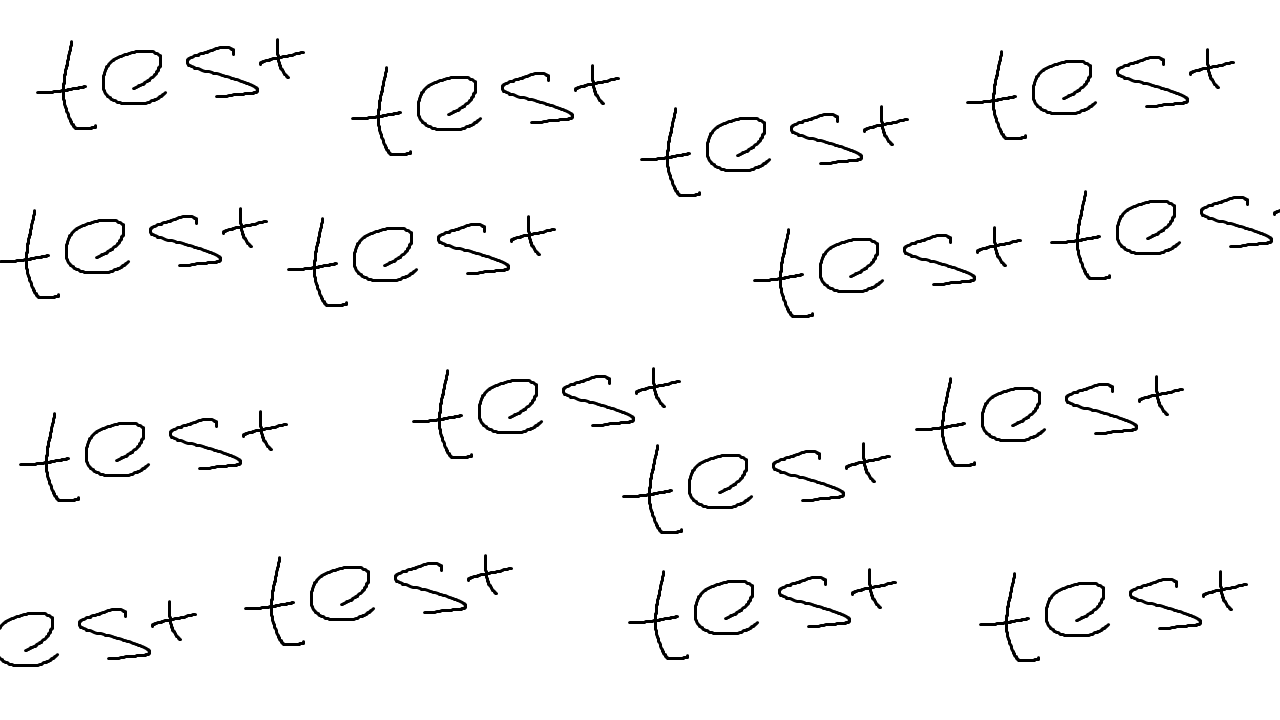 test test test test
test test test tes
test test test test
est test test test